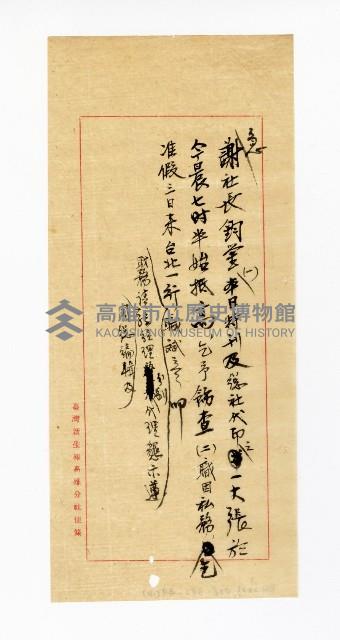 急
謝社長鈞鑒 (一)半月特刊及總社代印之一大張於
今晨七時半始抵高乞予飭查(二)職因私務乞
准假三日來台北一行職
職務請理代理懇示遵
臺灣新生報高雄分社便箋
高雄市立歷史博物館
KAOHSIUNG MUSEUM OF HISTORY